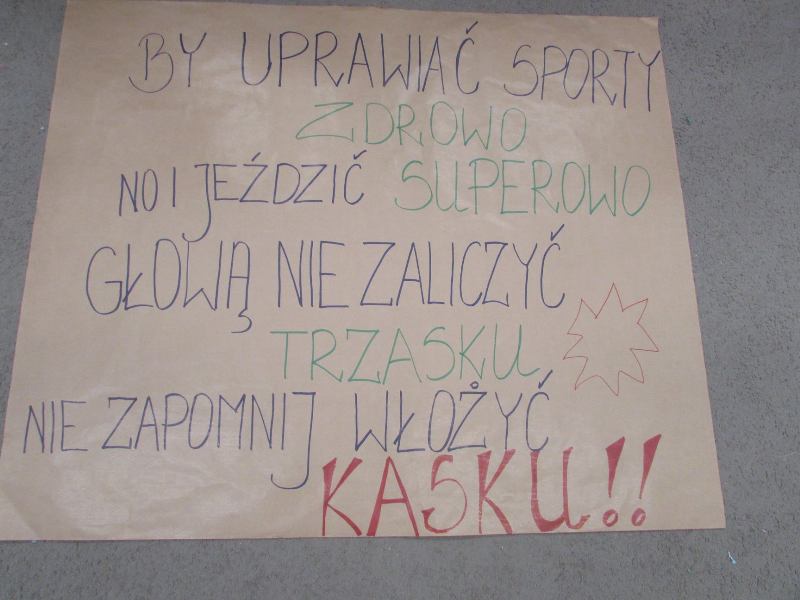 BY UPRAWIAĆ SPORTY
ZDROWO
NO I JEŹDZIĆ SUPEROWO
GŁOWĄ NIE ZALICZYĆ
TRZASKU
NIE ZAPOMNIJ WŁOŻYĆ
KASKU!!